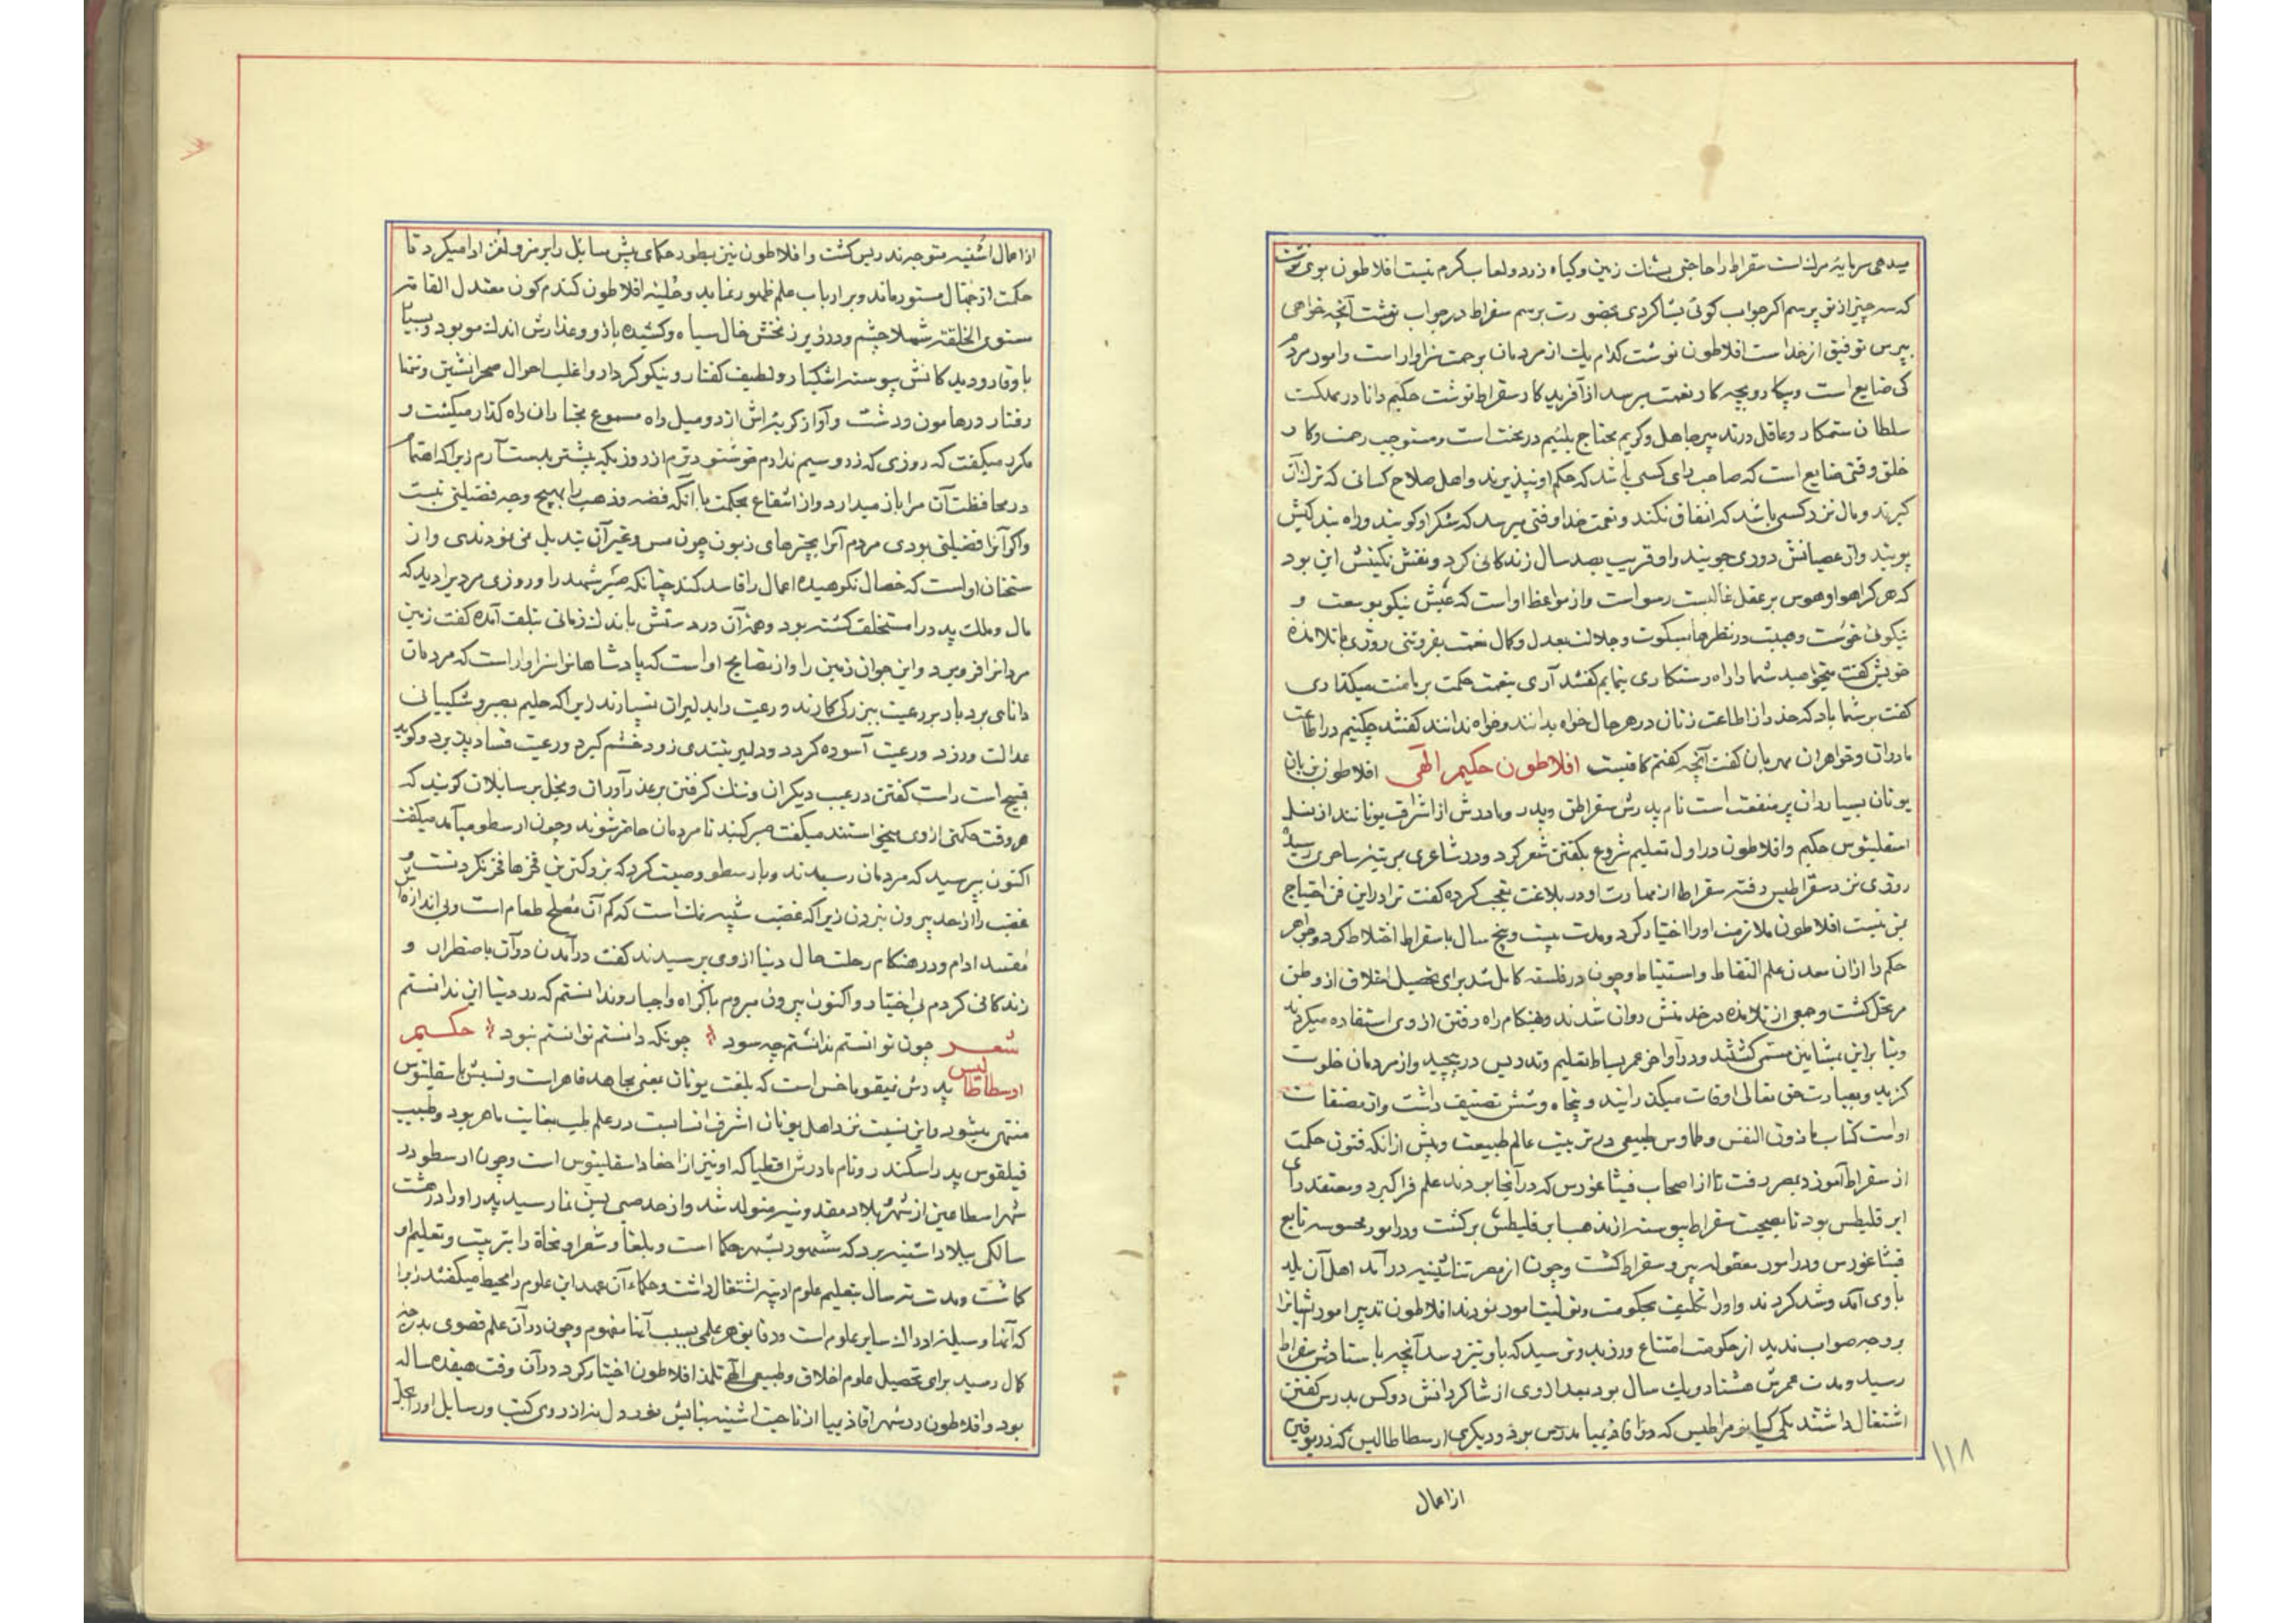 میدهی سرمایهٔ مرك است سقراط را حاجتی بشتك زمین وکیاه زرد ولعاب کرم نیست افلاطون بوی نوشت
که سه چیز از تو پرسم اکر جواب کوئی بشاکردی حضورت برسم سقراط در جواب نوشت آنچه خواهی
بپرس توفیق از خداست افلاطون نوشت کدام یك از مردمان برحمت سزاوار است وامور مردم
کی ضایع است وبچه کار نعمت برسد از آفریدکار سقراط نوشت حکیم دانا در مملکت
سلطان ستمکار وعاقل در بند پیر جاهل وکریم محتاج بلئیم درمحنت است ومستوجب رحمت وکار
خلق وقتی ضایع است که صاحب رای کسی باشد که حکم او نپذیرند واهل صلاح کسانی که ترك آن
کیرند ومال نزد کسی باشد که انفاق نکند ونعمت خدا وقتی میرسد که شکر او کویند وراه بندکیش
پویند واز عصیانش دوری جویند واو قریب بصد سال زندکانی کرد ونقش نکینش این بود
که هر کرا هوا وهوس بر عقل غالبست رسوا است واز مواعظ او است که عیش نیکو بوسعت و
نیکوئی خوست وهیبت در نظرها بسکوت وجلالت بعدل وکمال نعمت بفروتنی روزی با تلامذه
خویش کفت میخواهید شما را راه رستکاری بنمایم کفتند آری بنعمت حکمت بر ما منت میکذاری
کفت بر شما باد که حذر از اطاعت زنان در هر حال خواه بدانند وخواه ندانند کفتند چکنیم در اطاعت
مادران وخواهران مهربان کفت آنچه کفتم کافیست افلاطون حکیم الهی افلاطون بزبان
یونان بسیاردان پر منفعت است نام پدرش سقراطن وپدر ومادرش از اشراف یونانند از نسل
اسقلینوس حکیم وافلاطون در اول تعلیم شروع بکفتن شعر کرد ودر شاعری بمرتبهٔ ساحری رسید
روزی نزد سقراطیس رفته سقراط از مهارت او در بلاغت تعجب کرده کفت ترا در این فن احتیاج
بمن نیست افلاطون ملازمت او را اختیار کرد ومدت بیست وپنج سال با سقراط اختلاط کرد وجواهر
حکم را از ان معدن علم التقاط واستنباط وچون در فلسفه کامل شد برای تحصیل اخلاق از وطن
مرتحل کشت وجمعی از تلامذه در خدمتش روان شدند وهنکام راه رفتن از وی استفاده میکردند
وبنا براین بمشایین مسمی کشتند ودر اواخر عمر بساط تعلیم وتدریس در پیچید واز مردمان خلوت
کزید وبعبادت حق تعالی اوقات میکذرانید وپنجاه وشش تصنیف داشت واز مصنفات
او است کتاب فاذون النفس وطماوس طبیعی در ترتیب عالم طبیعت وپیش از انکه فنون حکمت
از سقراط آموزد بمصر رفت تا از اصحاب فیثاغورس که در آنجا بودند علم فرا کیرد ومعتقد رای
ابرقلیطس بود تا بصحبت سقراط پیوسته از مذهب ابرقلیطش برکشت ودر امور محسوسه تابع
فیثاغورس ودر امور معقوله پیرو سقراط کشت وچون از مصر تنا ئینیه درآمد اهل آن بلد
با وی آمد وشد کردند واو را تکلیف بحکومت وتولیت امور نمودند افلاطون تدبیر امور ایشانرا
بر وجه صواب ندید از حکومت امتناع ورزید وترسید که باو نیز رسد آنچه باستادش سقراط
رسید ومدت عمرش هشتاد ویك سال بود بعد از وی از شاکردانش دو کس بدرس کفتن
اشتغال داشتند یکی کیا نومراطیس که در اقاذیمیا مدرس بود ودیکری ارسطاطالیس که در لوقین
۱۱۸
از اعمال
از اعمال اشنیه متوجه تدریس کشت وافلاطون نیز بطور حکمای پیش مسایل را برمز ولغز ادا میکرد تا
حکمت از جهال مستور ماند وبر ارباب علم ظهور نماید وحلیهٔ افلاطون کندم کون معتدل القامه
مستوی الخلقه شهلا چشم ودر زیر زنخش خال سیاه وکشیده بازو وعذارش اندك مو بود وبسیار
با وقار ودیدکانش پیوسته اشکبار ولطیف کفتار ونیکو کردار واغلب احوال صحرانشین وتنها
رفتار در هامون ودشت وآواز کریه اش از دو میل راه مسموع بختاران راه کذار میکشت و
مکرر میکفت که روزی که زر وسیم ندارم خوشنودترم از روزیکه بیشتر بدست آرم زیرا که اهتمام
در محافظت آن مرا باز میدارد واز انتفاع بحکمت با آنکه فضه وذهب را بهیچ وجه فضیلتی نیست
واکر آنرا فضیلتی بودی مردم آنرا بچیزهای زبون چون مس وغیر آن تبدیل نمی نمودندی واز
سخنان او است که خصال نکوهیده اعمال را فاسد کند چنانکه صبر شهد را وروزی مردیرا دید که
مال وملك پدر را مستخلف کشته بود وهمه آن در دستش باندك زمانی بتلف آمده کفت زمین
مردانرا فرو برد واین جوان زمین را واز نصایح او است که پادشاهانرا سزاوار است که مردمان
دانای بردبار بر رعیت ببزرکی کمارند ورعیت را بدلیران نسپارند زیرا که حلیم بصبر وشکیبائی
عدالت ورزد ورعیت آسوده کردد ودلیر بتندی زود خشم کیرد ورعیت فساد پذیرد وکوید
قبیح است راست کفتن در عیب دیکران وننك کرفتن بر عذرآوران وبخل بر سایلان کویند که
هر وقت حکمتی از وی میخواستند میکفت صبر کنید تا مردمان حاضر شوند وچون ارسطو میآمد میکفت
اکنون بپرسید که مردمان رسیدند وبارسطو وصیت کرد که بزرکترین فخرها فخر نکردنست و
غضب را از حد بیرون نبردن زیرا که غضب شبیه نمك است که کم آن مصلح طعام است وبی اندازه اش
مفسد ادام ودر هنکام رحلت حال دنیا از وی پرسیدند کفت درآمدن در آن باضطرار و
زندکانی کردم بی اختیار واکنون بیرون میروم باکراه واجبار وندانستم که در دنیا این ندانستم
شعر چون توانستم ندانستم چه سود چونکه دانستم توانستم نبود حکیم
ارسطاطالیس پدرش نیقوماخس است که بلغت یونان یعنی مجاهد قاهر است ونسبش باسقلینوس
منتهی میشود واین نسبت نزد اهل یونان اشرف انسابست در علم طب بغایت ماهر بود وطبیب
فیلقوس پدر اسکندر ونام مادرش افطیا که او نیز از احفاد اسقلینوس است وچون ارسطو در
شهر اسطاغین از شهر بلاد مقدونیه متولد شد واز حد صبی بسن نما رسید پدر او را در هشت
سالکی ببلاد اشنیه برد که مشهور بشهر حکما است وبلغا وشعرا ونحاة را بتربیت وتعلیم او
کماشت ومدت نه سال بتعلیم علوم ادبیه اشتغال داشت وحکماء آن عهد این علوم را محیط میکفتند زیرا
که آنها وسیلهٔ ادراك سایر علوم است ودقایق هر علمی بسبب آنها مفهوم وچون در آن علم قصوی بدرجهٔ
کمال رسید برای تحصیل علوم اخلاق وطبیعی والهی تلمذ افلاطون اختیار کرد در آن وقت هفده ساله
بود وافلاطون در شهر اقاذیمیا از ناحیت اشنیه بنایش نمود